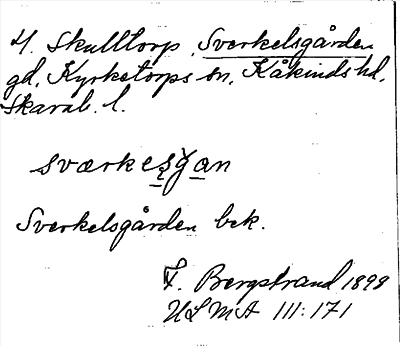 4. Skulltorp, Sverkelsgården
gd, Kyrketorps sn, Kåkinds hd,
Skarab. l.
sværkes̨ǧan
Sverkelsgården bek.
F. Bergstrand 1899
ULMA 111:171